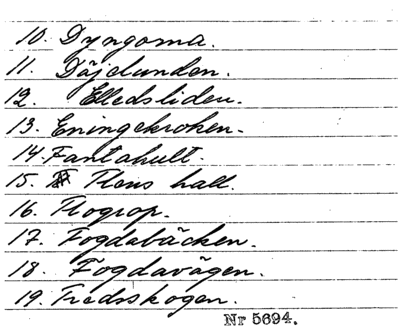 10. Dyngorna.
11. Döjelunden.
12. Elledsliden.
13. Eningekroken.
14. Fantahult.
15. Flens hall.
16. Flogrop.
17. Fogdabäcken.
18. Fogdavägen.
19. Fredsskogen.
Nr 5694.